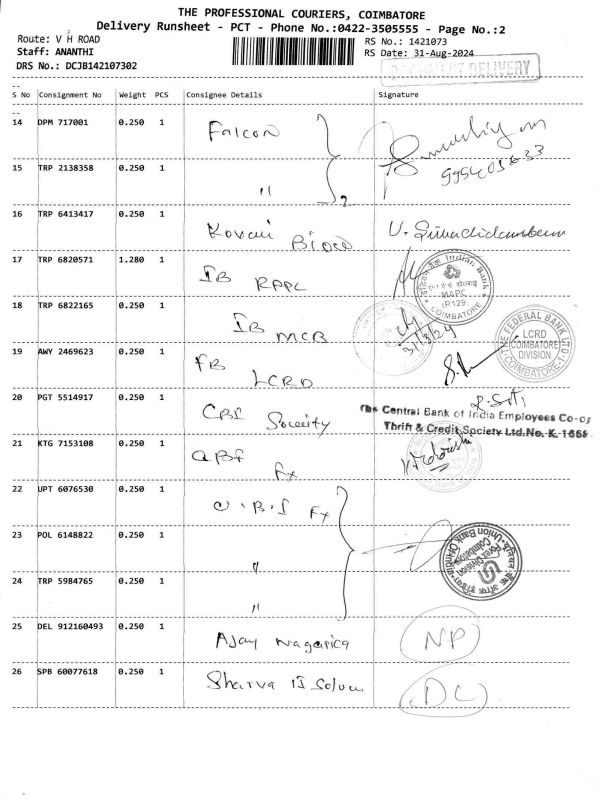 THE PROFESSIONAL COURIERS, COIMBATORE
Delivery Runsheet - PCT - Phone No.:0422-3505555 - Page No.:2
Route: V H ROAD
Staff: ANANTHI
DRS No.: DCJB142107302
RS No.: 1421073
RS Date: 31-Aug-2024
DOCUMENT DELIVERY
--
S No Consignment No Weight PCS Consignee Details Signature
--
14 DPM 717001 0.250 1 Falcon
15 TRP 2138358 0.250 1 " 2
16 TRP 6413417 0.250 1 Kovai
17 TRP 6820571 1.280 1 IB RPPC
Indian Bank
MAPC
IR129
COIMBATORE
18 TRP 6822165 0.250 1 IB MCB
31/8/24
19 AWY 2469623 0.250 1 FB LCRD
THE FEDERAL BANK LTD.
LCRD
COIMBATORE
DIVISION
COIMBATORE
20 PGT 5514917 0.250 1 CBI Society
The Central Bank of India Employees Co-op
Thrift & Credit Society Ltd. No. K. 1668
21 KTG 7153108 0.250 1 Fx
22 UPT 6076530 0.250 1 U.B.I Fx
23 POL 6148822 0.250 1 "
Union Bank Of India
Forex Division
Coimbatore
24 TRP 5984765 0.250 1 "
25 DEL 912160493 0.250 1 Ajay NP
26 SPB 60077618 0.250 1 Sharva DC